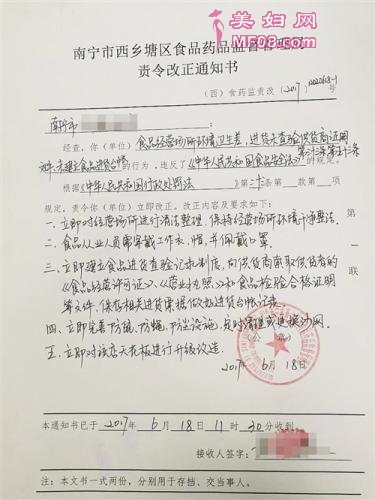 美妇网
MEIFU.COM
南宁市西乡塘区食品药品监督管理局
责令改正通知书
(西)食药监责改〔2017〕
号
南宁市
经查,你(单位)食品经营场所环境卫生差,进货未查验供货商证明
文件,未建立食品进货台帐的行为,违反了《中华人民共和国食品安全法》的规定。
根据《中华人民共和国行政处罚法》第二十三条第 款第 项
规定,责令你(单位)立即改正。改正内容及要求如下:
一、立即对经营场所进行清洁整理,保持经营场所环境干净整洁。
二、食品从业人员需穿戴工作衣、帽,并佩戴口罩。
三、立即建立食品进货查验记录制度,向供货商索取供货者的
《食品经营许可证》、《营业执照》和食品检验合格证明
等文件,保存相关进货票据做好进货台帐记录。
四、立即完善防鼠、防蝇、防尘设施,及时清理或更换纱网。
五、立即对该店天花板进行升级改造。
(公章)
2017年6月18日
第一联
本通知书已于2017年6月18日11时30分收到。
接收人签字:
注:本文书一式两份,分别用于存档、交当事人。